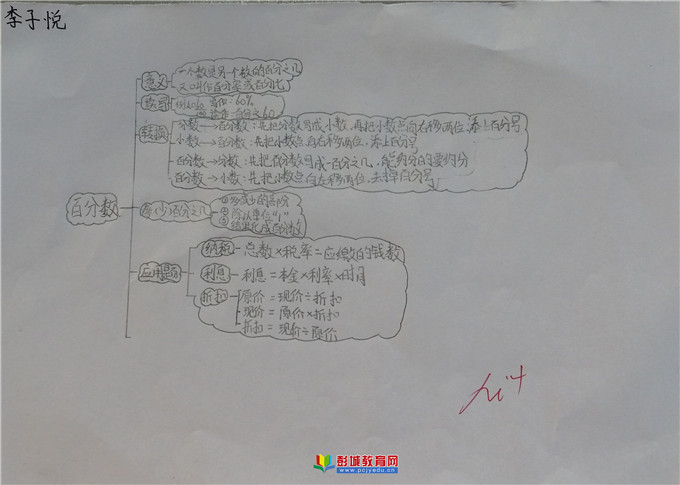 李子悦
意义
一个数是另一个数的百分之几
又叫作百分率或百分比
读写
写作:60%
读作:百分之60
转换
分数→百分数:先把分数写成小数,再把小数点向右移两位,添上百分号
小数→百分数:先把小数点向右移两位,添上百分号
百分数→分数:先把百分数写成一百分之几,能约分的要约分
百分数→小数:先把小数点向左移两位,去掉百分号
百分数
多(少)百分之几
①多或少的部分
②除以单位"1"
③结果化成百分数
应用题
纳税
总数×税率=应缴的钱数
利息
利息=本金×利率×时间
折扣
原价=现价÷折扣
现价=原价×折扣
折扣=现价÷原价
彭城教育网
www.pcjyedu.cn